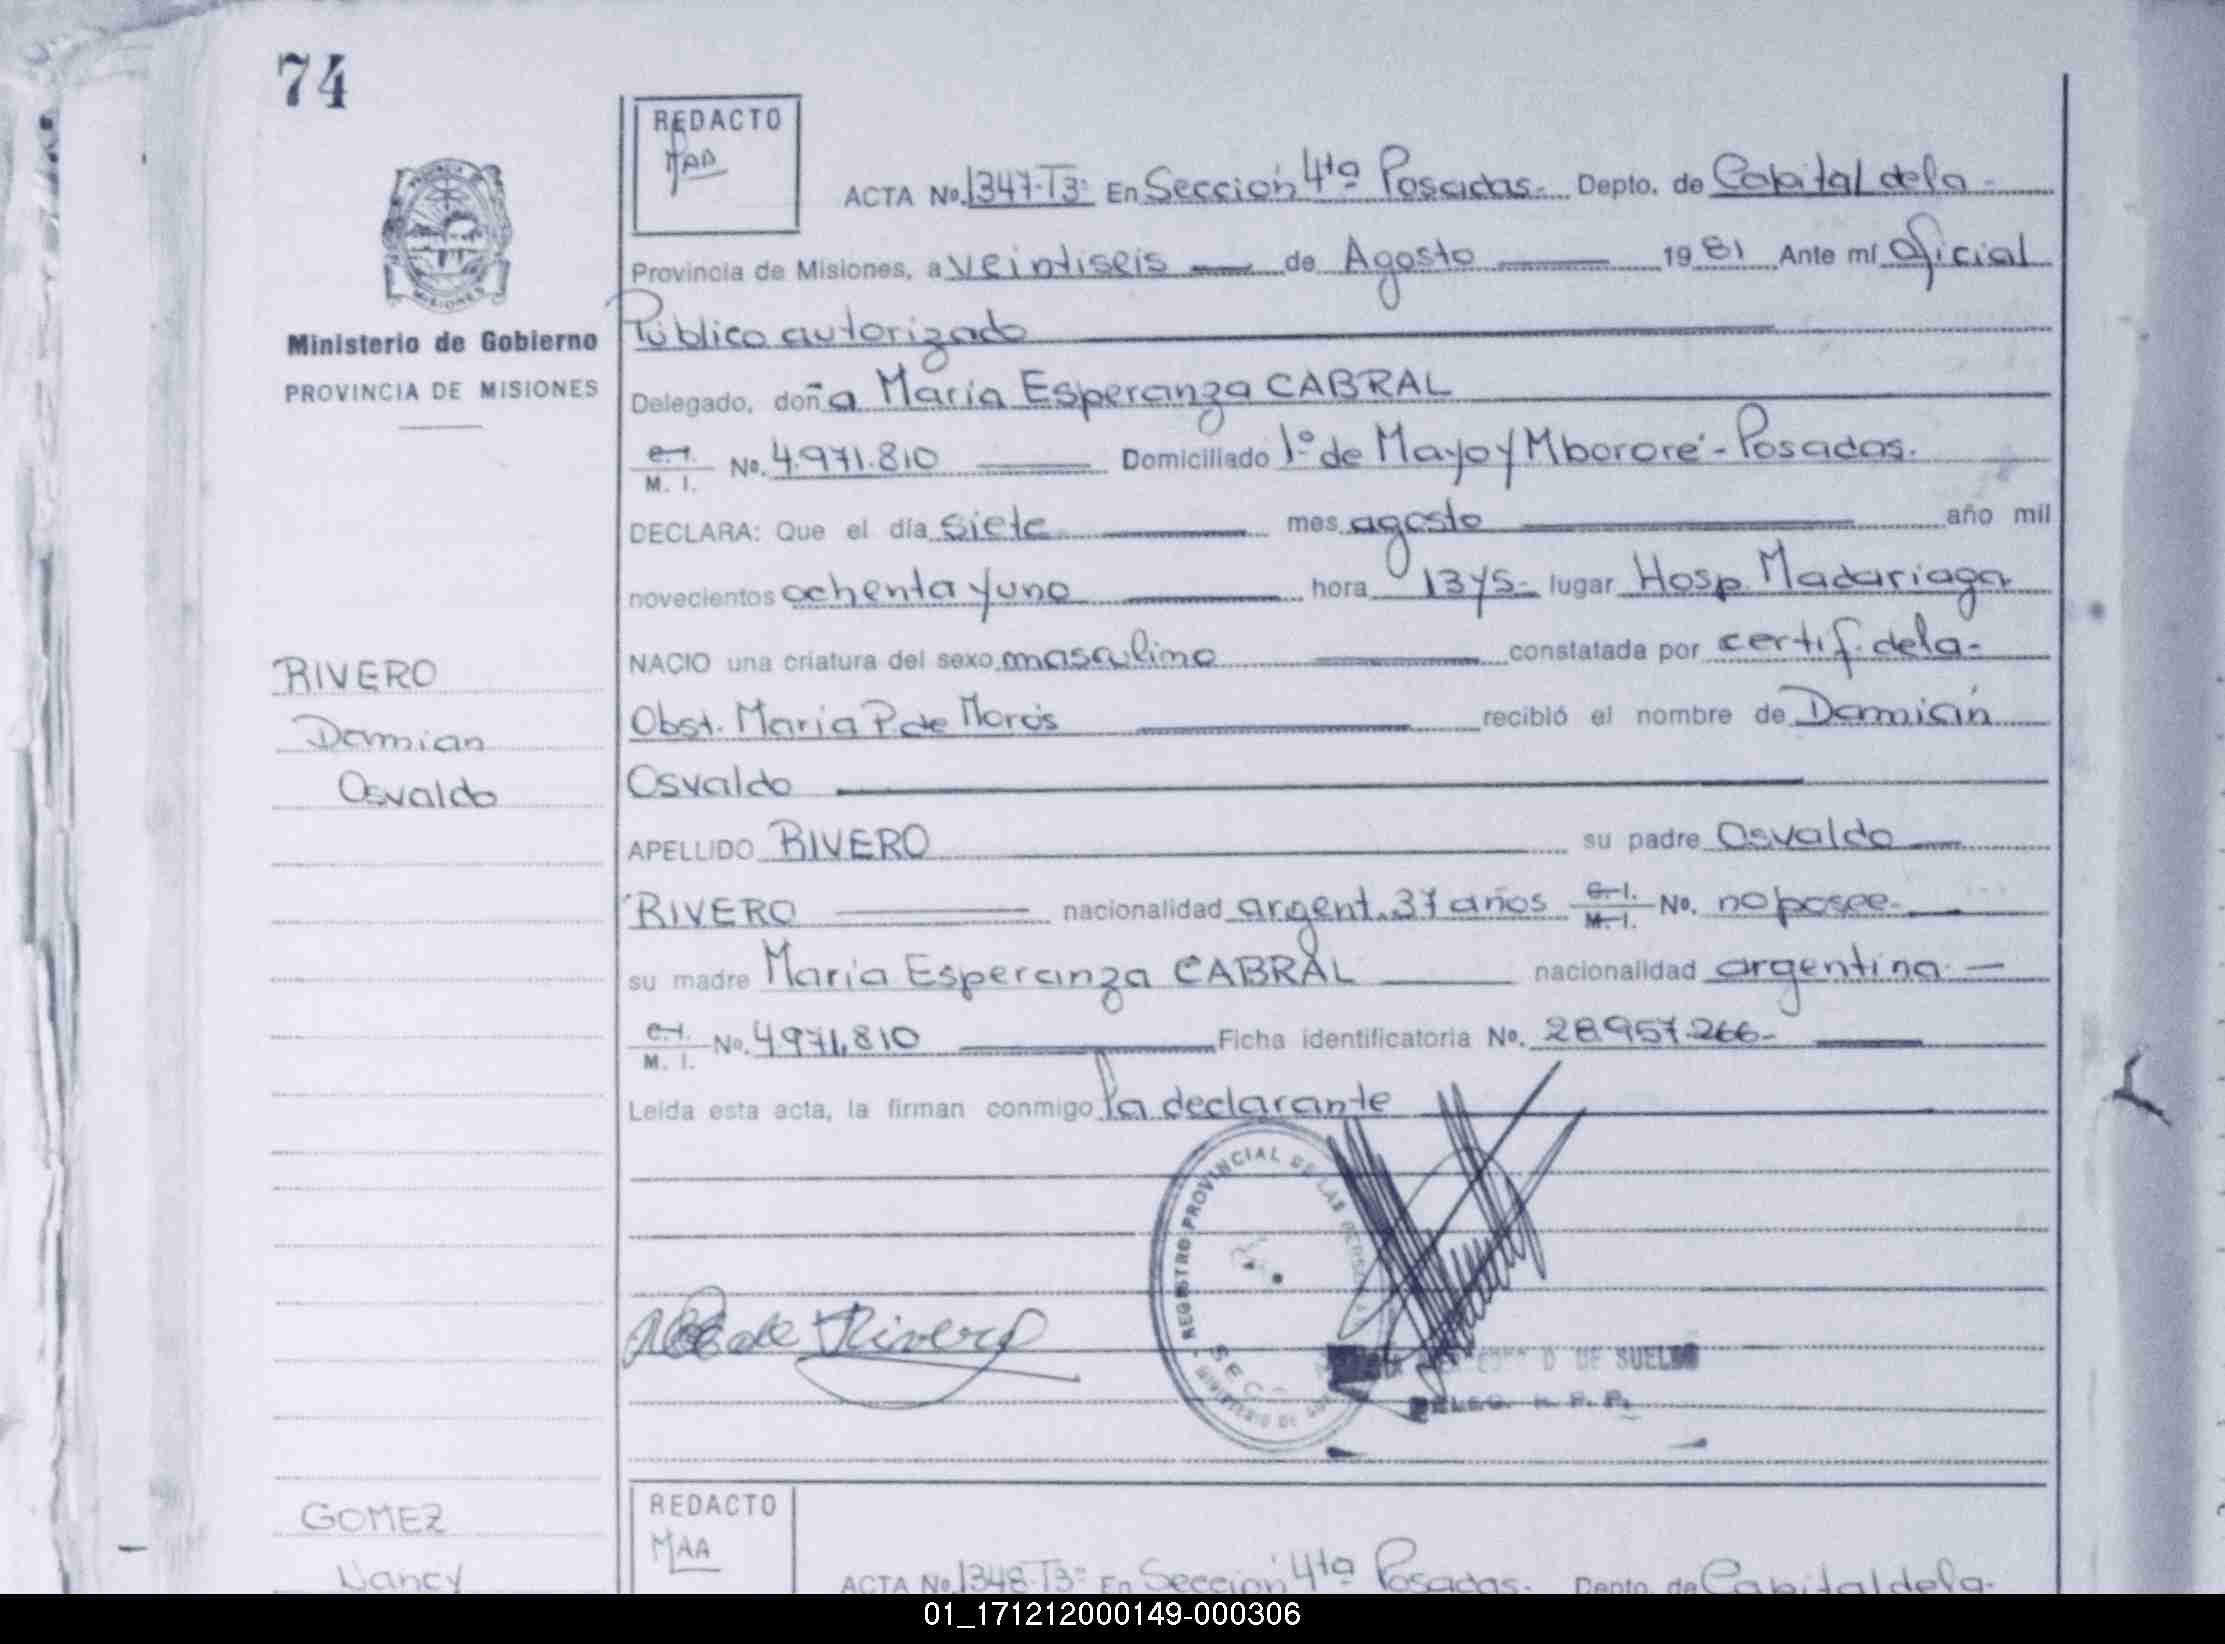 74
REDACTO
ACTA No. 1347-T3º En Sección 4ta Posadas. Depto. de Capital de la-
Provincia de Misiones, a veintiseis de Agosto 1981 Ante mí Oficial
Ministerio de Gobierno
Público autorizado
PROVINCIA DE MISIONES
Delegado, doña María Esperanza CABRAL
C. I.
M. I. No. 4.971.810 Domiciliado 1º de Mayo y Mbororé - Posadas.
DECLARA: Que el día siete mes agosto año mil
novecientos ochenta y uno hora 13 y 5- lugar Hosp. Madariaga
RIVERO
NACIO una criatura del sexo masculino constatada por certif. de la-
Damian
Obst. María P. de Morós recibió el nombre de Damián
Osvaldo
Osvaldo
APELLIDO RIVERO su padre Osvaldo
RIVERO nacionalidad argent. 37 años C. I. M. I. No. no posee-
su madre María Esperanza CABRAL nacionalidad argentina
C. I.
M. I. No. 4.971.810 Ficha identificatoria No. 28.957.266-
Leída esta acta, la firman conmigo la declarante
REGISTRO PROVINCIAL DE LAS
SECC
de Rivero
DE SUELDO
DELEG. R. P. P.
REDACTO
MAA
GOMEZ
Nancy
ACTA No. 1348-T3º En Sección 4ta Posadas. Depto. de Capital de la-
01_171212000149-000306